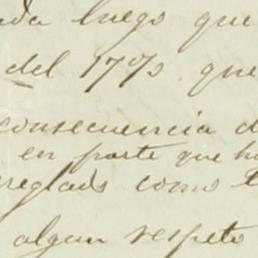 da luego que
del 17% que
consecuencia d
en parte que ha
reglado como
algun respeto